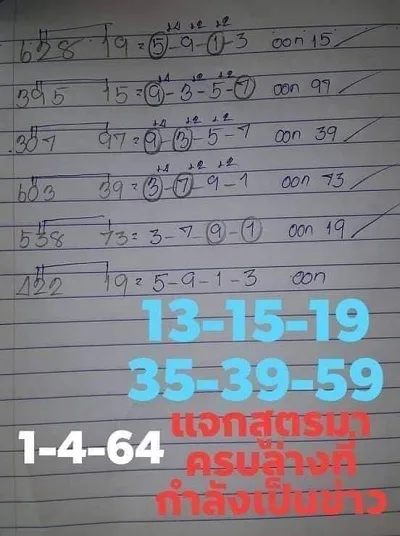 +4 +2 +2
628 19 = 5-9-1-3 ออก 15
+4 +2 +2
395 15 = 9-3-5-7 ออก 97
+4 +2 +2
307 97 = 9-3-5-7 ออก 39
+4 +2 +2
603 39 = 3-7-9-1 ออก 73
538 73 = 3-7-9-1 ออก 19
422 19 = 5-9-1-3 ออก
13-15-19
35-39-59
1-4-64
แจกสูตรมา
ครบล่างที่
กำลังเป็นข่าว